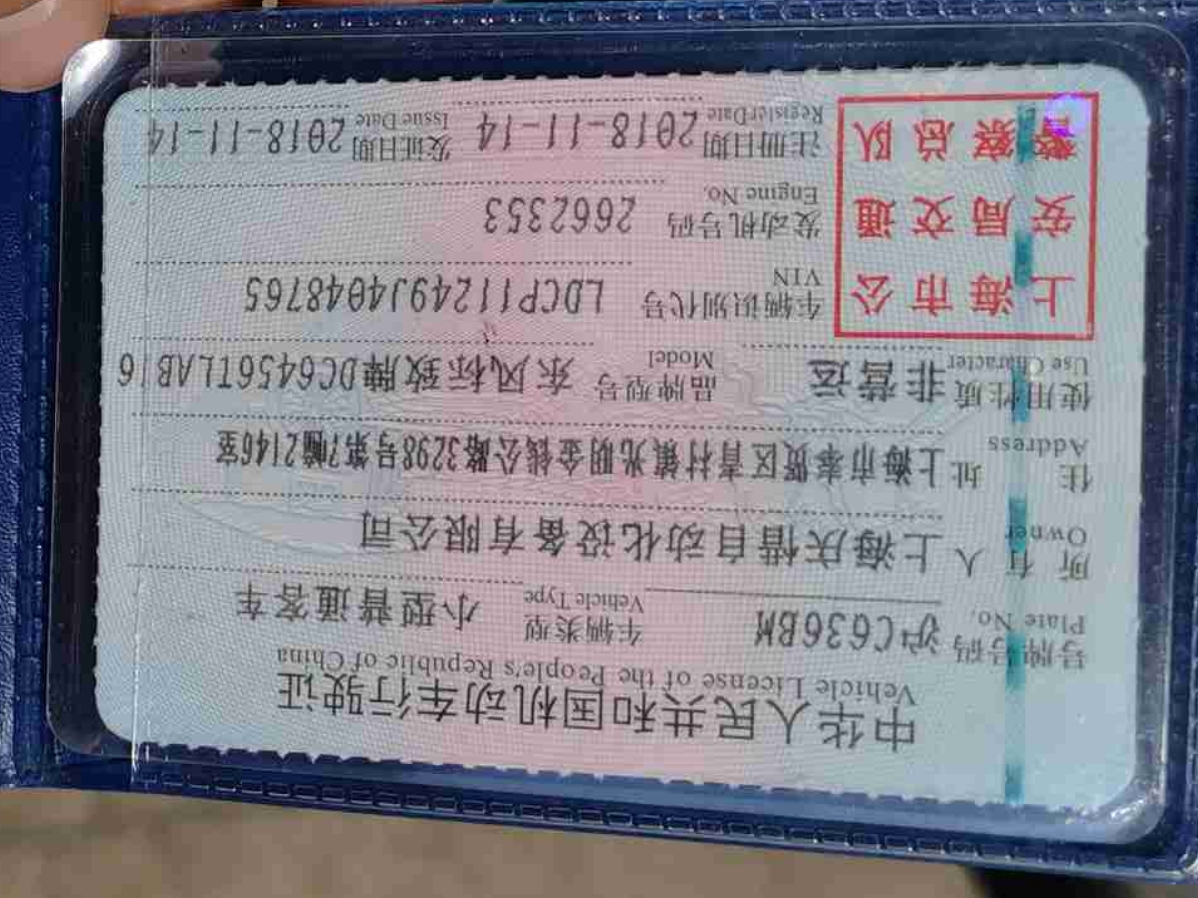 中华人民共和国机动车行驶证
Vehicle License of the People's Republic of China
号牌号码 沪C636BM 车辆类型 小型普通客车
Plate No. Vehicle Type
所有人 上海庆惜自动化设备有限公司
Owner
住址 上海市奉贤区青村镇光明金钱公路3298号第7幢2146室
Address
使用性质 非营运 品牌型号 东风标致牌DC6456TLAB16
Use Character Model
上海市公安局交通警察总队
车辆识别代号 LDCP11249J4048765
VIN
发动机号码 2662353
Engine No.
注册日期 2018-11-14 发证日期 2018-11-14
Register Date Issue Date